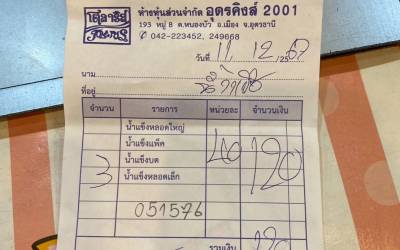 ห้างหุ้นส่วนจำกัด อุดรคิงส์ 2001
193 หมู่ 8 ต.หนองบัว อ.เมือง จ.อุดรธานี
042-223452, 249668
วันที่ 11 / 12 / 2567
นาม
ที่อยู่
จำนวน รายการ หน่วยละ จำนวนเงิน
น้ำแข็งหลอดใหญ่
น้ำแข็งแพ็ค
น้ำแข็งบด
3 น้ำแข็งหลอดเล็ก 40 120
051576
รวมเงิน 120